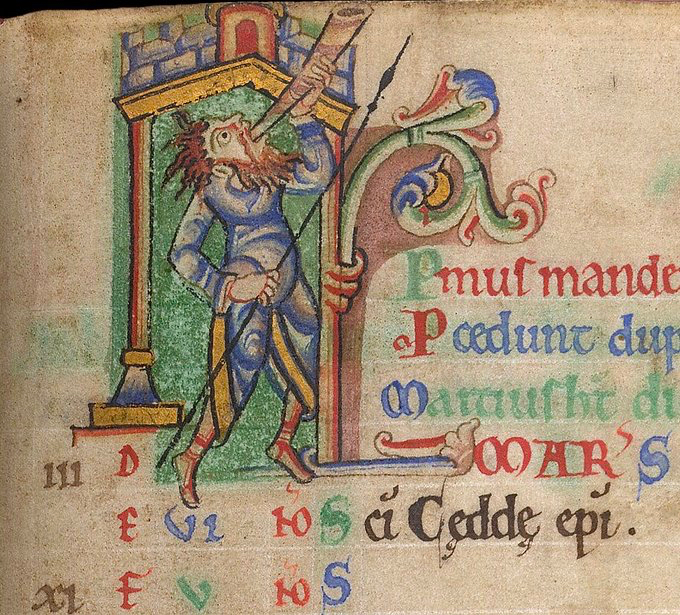 Pmuſ mande
Pcedunt dup
Martiuſ ht di
III D MARs S
E VI NO S ci Cędde epi.
XI F V NO S